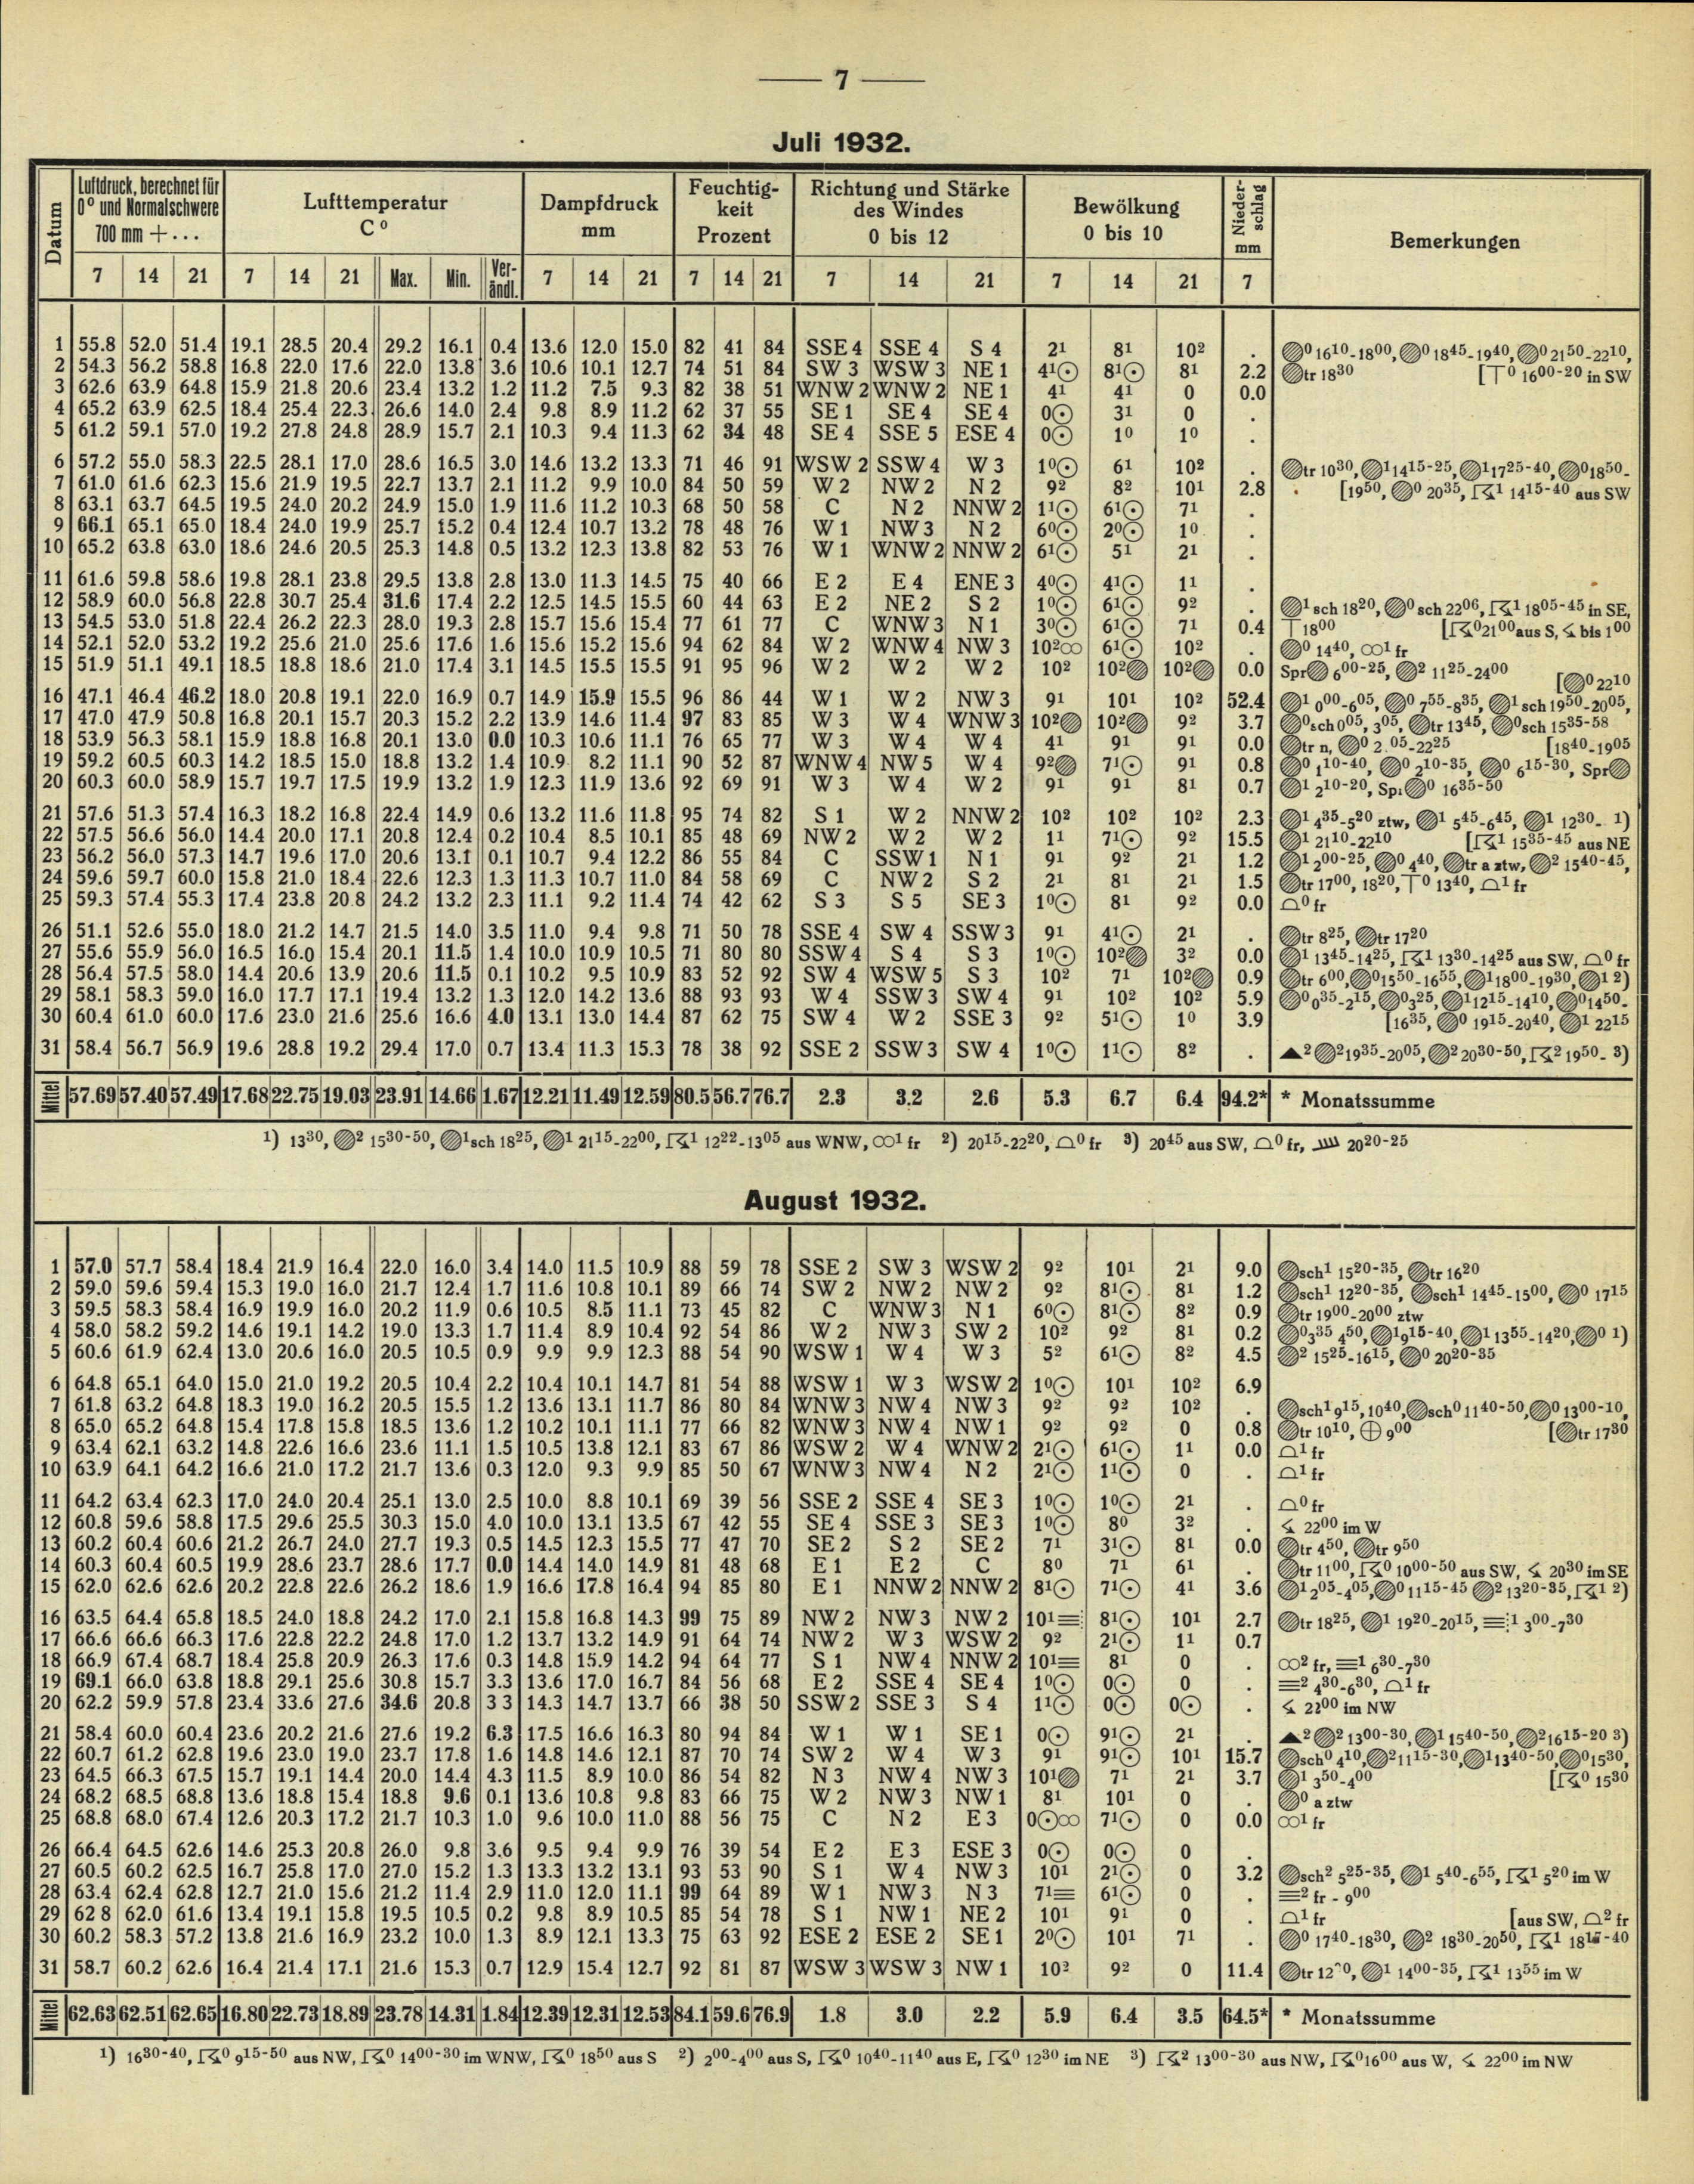 — 7 —
Juli 1932.
Datum | Luftdruck, berechnet für 0° und Normalschwere 700 mm + ... | Lufttemperatur C° | Dampfdruck mm | Feuchtigkeit Prozent | Richtung und Stärke des Windes 0 bis 12 | Bewölkung 0 bis 10 | Niederschlag mm | Bemerkungen
7 14 21 7 14 21 Max. Min. Verändl. 7 14 21 7 14 21 7 14 21 7 14 21 7
1 55.8 52.0 51.4 19.1 28.5 20.4 29.2 16.1 0.4 13.6 12.0 15.0 82 41 84 SSE 4 SSE 4 S 4 2¹ 8¹ 10² . 0 1610-1800, 0 1845-1940, 0 2150-2210,
2 54.3 56.2 58.8 16.8 22.0 17.6 22.0 13.8 3.6 10.6 10.1 12.7 74 51 84 SW 3 WSW 3 NE 1 4¹⊙ 8¹⊙ 8¹ 2.2 tr 1830 [⊤0 1600-20 in SW
3 62.6 63.9 64.8 15.9 21.8 20.6 23.4 13.2 1.2 11.2 7.5 9.3 82 38 51 WNW 2 WNW 2 NE 1 4¹ 4¹ 0 0.0
4 65.2 63.9 62.5 18.4 25.4 22.3 26.6 14.0 2.4 9.8 8.9 11.2 62 37 55 SE 1 SE 4 SE 4 0⊙ 3¹ 0 .
5 61.2 59.1 57.0 19.2 27.8 24.8 28.9 15.7 2.1 10.3 9.4 11.3 62 34 48 SE 4 SSE 5 ESE 4 0⊙ 1⁰ 1⁰ .
6 57.2 55.0 58.3 22.5 28.1 17.0 28.6 16.5 3.0 14.6 13.2 13.3 71 46 91 WSW 2 SSW 4 W 3 1⁰⊙ 6¹ 10² . tr 1030, 1 1415-25, 1 1725-40, 0 1850-
7 61.0 61.6 62.3 15.6 21.9 19.5 22.7 13.7 2.1 11.2 9.9 10.0 84 50 59 W 2 NW 2 N 2 9² 8² 10¹ 2.8 [1950, 0 2035, 1 1415-40 aus SW
8 63.1 63.7 64.5 19.5 24.0 20.2 24.9 15.0 1.9 11.6 11.2 10.3 68 50 58 C N 2 NNW 2 1¹⊙ 6¹⊙ 7¹ .
9 66.1 65.1 65.0 18.4 24.0 19.9 25.7 15.2 0.4 12.4 10.7 13.2 78 48 76 W 1 NW 3 N 2 6⁰⊙ 2⁰⊙ 1⁰ .
10 65.2 63.8 63.0 18.6 24.6 20.5 25.3 14.8 0.5 13.2 12.3 13.8 82 53 76 W 1 WNW 2 NNW 2 6¹⊙ 5¹ 2¹ .
11 61.6 59.8 58.6 19.8 28.1 23.8 29.5 13.8 2.8 13.0 11.3 14.5 75 40 66 E 2 E 4 ENE 3 4⁰⊙ 4¹⊙ 1¹ .
12 58.9 60.0 56.8 22.8 30.7 25.4 31.6 17.4 2.2 12.5 14.5 15.5 60 44 63 E 2 NE 2 S 2 1⁰⊙ 6¹⊙ 9² . 1 sch 1820, 0 sch 2206, 1 1805-45 in SE,
13 54.5 53.0 51.8 22.4 26.2 22.3 28.0 19.3 2.8 15.7 15.6 15.4 77 61 77 C WNW 3 N 1 3⁰⊙ 6¹⊙ 7¹ 0.4 ⊤1800 [0 2100 aus S, bis 100
14 52.1 52.0 53.2 19.2 25.6 21.0 25.6 17.6 1.6 15.6 15.2 15.6 94 62 84 W 2 WNW 4 NW 3 10²∞ 6¹⊙ 10² . 0 1440, ∞1 fr
15 51.9 51.1 49.1 18.5 18.8 18.6 21.0 17.4 3.1 14.5 15.5 15.5 91 95 96 W 2 W 2 W 2 10² 10² 10² 0.0 Spr 600-25, 2 1125-2400
16 47.1 46.4 46.2 18.0 20.8 19.1 22.0 16.9 0.7 14.9 15.9 15.5 96 86 44 W 1 W 2 NW 3 9¹ 10¹ 10² 52.4 1 000-605, 0 755-835, 1 sch 1950-2005, [0 2210
17 47.0 47.9 50.8 16.8 20.1 15.7 20.3 15.2 2.2 13.9 14.6 11.4 97 83 85 W 3 W 4 WNW 3 10² 10² 9² 3.7 0 sch 005, 305, tr 1345, 0 sch 1535-58
18 53.9 56.3 58.1 15.9 18.8 16.8 20.1 13.0 0.0 10.3 10.6 11.1 76 65 77 W 3 W 4 W 4 4¹ 9¹ 9¹ 0.0 tr n, 0 2.05-2225 [1840-1905
19 59.2 60.5 60.3 14.2 18.5 15.0 18.8 13.2 1.4 10.9 8.2 11.1 90 52 87 WNW 4 NW 5 W 4 9² 7¹⊙ 9¹ 0.8 0 110-40, 0 210-35, 0 615-30, Spr
20 60.3 60.0 58.9 15.7 19.7 17.5 19.9 13.2 1.9 12.3 11.9 13.6 92 69 91 W 3 W 4 W 2 9¹ 9¹ 8¹ 0.7 1 210-20, Spr 0 1635-50
21 57.6 51.3 57.4 16.3 18.2 16.8 22.4 14.9 0.6 13.2 11.6 11.8 95 74 82 S 1 W 2 NNW 2 10² 10² 10² 2.3 1 435-520 ztw, 1 545-645, 1 1230- 1)
22 57.5 56.6 56.0 14.4 20.0 17.1 20.8 12.4 0.2 10.4 8.5 10.1 85 48 69 NW 2 W 2 W 2 1¹ 7¹⊙ 9² 15.5 1 2110-2210 [1 1535-45 aus NE
23 56.2 56.0 57.3 14.7 19.6 17.0 20.6 13.1 0.1 10.7 9.4 12.2 86 55 84 C SSW 1 N 1 9¹ 9² 2¹ 1.2 1 200-25, 0 440, tr a ztw, 2 1540-45,
24 59.6 59.7 60.0 15.8 21.0 18.4 22.6 12.3 1.3 11.3 10.7 11.0 84 58 69 C NW 2 S 2 2¹ 8¹ 2¹ 1.5 tr 1700, 1820, ⊤0 1340, 1 fr
25 59.3 57.4 55.3 17.4 23.8 20.8 24.2 13.2 2.3 11.1 9.2 11.4 74 42 62 S 3 S 5 SE 3 1⁰⊙ 8¹ 9² 0.0 0 fr
26 51.1 52.6 55.0 18.0 21.2 14.7 21.5 14.0 3.5 11.0 9.4 9.8 71 50 78 SSE 4 SW 4 SSW 3 9¹ 4¹⊙ 2¹ . tr 825, tr 1720
27 55.6 55.9 56.0 16.5 16.0 15.4 20.1 11.5 1.4 10.0 10.9 10.5 71 80 80 SSW 4 S 4 S 3 1⁰⊙ 10² 3² 0.0 1 1345-1425, 1 1330-1425 aus SW, 0 fr
28 56.4 57.5 58.0 14.4 20.6 13.9 20.6 11.5 0.1 10.2 9.5 10.9 83 52 92 SW 4 WSW 5 S 3 10² 7¹ 10² 0.9 tr 600, 0 1550-1655, 1 1800-1930, 1 2)
29 58.1 58.3 59.0 16.0 17.7 17.1 19.4 13.2 1.3 12.0 14.2 13.6 88 93 93 W 4 SSW 3 SW 4 9¹ 10² 10² 5.9 0 035-215, 0 325, 1 1215-1410, 0 1450-
30 60.4 61.0 60.0 17.6 23.0 21.6 25.6 16.6 4.0 13.1 13.0 14.4 87 62 75 SW 4 W 2 SSE 3 9² 5¹⊙ 1⁰ 3.9 [1635, 0 1915-2040, 1 2215
31 58.4 56.7 56.9 19.6 28.8 19.2 29.4 17.0 0.7 13.4 11.3 15.3 78 38 92 SSE 2 SSW 3 SW 4 1⁰⊙ 1¹⊙ 8² . ▲2 2 1935-2005, 2 2030-50, 2 1950- 3)
Mittel 57.69 57.40 57.49 17.68 22.75 19.03 23.91 14.66 1.67 12.21 11.49 12.59 80.5 56.7 76.7 2.3 3.2 2.6 5.3 6.7 6.4 94.2* * Monatssumme
1) 1330, 2 1530-50, 1 sch 1825, 1 2115-2200, 1 1222-1305 aus WNW, ∞1 fr 2) 2015-2220, 0 fr 3) 2045 aus SW, 0 fr, 2020-25
August 1932.
1 57.0 57.7 58.4 18.4 21.9 16.4 22.0 16.0 3.4 14.0 11.5 10.9 88 59 78 SSE 2 SW 3 WSW 2 9² 10¹ 2¹ 9.0 sch1 1520-35, tr 1620
2 59.0 59.6 59.4 15.3 19.0 16.0 21.7 12.4 1.7 11.6 10.8 10.1 89 66 74 SW 2 NW 2 NW 2 9² 8¹⊙ 8¹ 1.2 sch1 1220-35, sch1 1445-1500, 0 1715
3 59.5 58.3 58.4 16.9 19.9 16.0 20.2 11.9 0.6 10.5 8.5 11.1 73 45 82 C WNW 3 N 1 6⁰⊙ 8¹⊙ 8² 0.9 tr 1900-2000 ztw
4 58.0 58.2 59.2 14.6 19.1 14.2 19.0 13.3 1.7 11.4 8.9 10.4 92 54 86 W 2 NW 3 SW 2 10² 9² 8¹ 0.2 0 335 450, 1 915-40, 1 1355-1420, 0 1)
5 60.6 61.9 62.4 13.0 20.6 16.0 20.5 10.5 0.9 9.9 9.9 12.3 88 54 90 WSW 1 W 4 W 3 5² 6¹⊙ 8² 4.5 2 1525-1615, 0 2020-35
6 64.8 65.1 64.0 15.0 21.0 19.2 20.5 10.4 2.2 10.4 10.1 14.7 81 54 88 WSW 1 W 3 WSW 2 1⁰⊙ 10¹ 10² 6.9
7 61.8 63.2 64.8 18.3 19.0 16.2 20.5 15.5 1.2 13.6 13.1 11.7 86 80 84 WNW 3 NW 4 NW 3 9² 9² 10² . sch1 915, 1040, sch0 1140-50, 0 1300-10,
8 65.0 65.2 64.8 15.4 17.8 15.8 18.5 13.6 1.2 10.2 10.1 11.1 77 66 82 WNW 3 NW 4 NW 1 9² 9² 0 0.8 tr 1010, ⊕ 900 [tr 1730
9 63.4 62.1 63.2 14.8 22.6 16.6 23.6 11.1 1.5 10.5 13.8 12.1 83 67 86 WSW 2 W 4 WNW 2 2¹⊙ 6¹⊙ 1¹ 0.0 1 fr
10 63.9 64.1 64.2 16.6 21.0 17.2 21.7 13.6 0.3 12.0 9.3 9.9 85 50 67 WNW 3 NW 4 N 2 2¹⊙ 1¹⊙ 0 . 1 fr
11 64.2 63.4 62.3 17.0 24.0 20.4 25.1 13.0 2.5 10.0 8.8 10.1 69 39 56 SSE 2 SSE 4 SE 3 1⁰⊙ 1⁰⊙ 2¹ . 0 fr
12 60.8 59.6 58.8 17.5 29.6 25.5 30.3 15.0 4.0 10.0 13.1 13.5 67 42 55 SE 4 SSE 3 SE 3 1⁰⊙ 8⁰ 3² . 2200 im W
13 60.2 60.4 60.6 21.2 26.7 24.0 27.7 19.3 0.5 14.5 12.3 15.5 77 47 70 SE 2 S 2 SE 2 7¹ 3¹⊙ 8¹ 0.0 tr 450, tr 950
14 60.3 60.4 60.5 19.9 28.6 23.7 28.6 17.7 0.0 14.4 14.0 14.9 81 48 68 E 1 E 2 C 8⁰ 7¹ 6¹ . tr 1100, 0 1000-50 aus SW, 2030 im SE
15 62.0 62.6 62.6 20.2 22.8 22.6 26.2 18.6 1.9 16.6 17.8 16.4 94 85 80 E 1 NNW 2 NNW 2 8¹⊙ 7¹⊙ 4¹ 3.6 1 205-405, 0 1115-45 2 1320-35, 1 2)
16 63.5 64.4 65.8 18.5 24.0 18.8 24.2 17.0 2.1 15.8 16.8 14.3 99 75 89 NW 2 NW 3 NW 2 10¹≡ 8¹⊙ 10¹ 2.7 tr 1825, 1 1920-2015, ≡1 300-730
17 66.6 66.6 66.3 17.6 22.8 22.2 24.8 17.0 1.2 13.7 13.2 14.9 91 64 74 NW 2 W 3 WSW 2 9² 2¹⊙ 1¹ 0.7
18 66.9 67.4 68.7 18.4 25.8 20.9 26.3 17.6 0.3 14.8 15.9 14.2 94 64 77 S 1 NW 4 NNW 2 10¹≡ 8¹ 0 . ∞2 fr, ≡1 630-730
19 69.1 66.0 63.8 18.8 29.1 25.6 30.8 15.7 3.3 13.6 17.0 16.7 84 56 68 E 2 SSE 4 SE 4 1⁰⊙ 0⊙ 0 . ≡2 430-630, 1 fr
20 62.2 59.9 57.8 23.4 33.6 27.6 34.6 20.8 3 3 14.3 14.7 13.7 66 38 50 SSW 2 SSE 3 S 4 1¹⊙ 0⊙ 0⊙ . 2200 im NW
21 58.4 60.0 60.4 23.6 20.2 21.6 27.6 19.2 6.3 17.5 16.6 16.3 80 94 84 W 1 W 1 SE 1 0⊙ 9¹⊙ 2¹ . ▲2 2 1300-30, 1 1540-50, 2 1615-20 3)
22 60.7 61.2 62.8 19.6 23.0 19.0 23.7 17.8 1.6 14.8 14.6 12.1 87 70 74 SW 2 W 4 W 3 9¹ 9¹⊙ 10¹ 15.7 sch0 410, 2 1115-30, 1 1340-50, 0 1530,
23 64.5 66.3 67.5 15.7 19.1 14.4 20.0 14.4 4.3 11.5 8.9 10.0 86 54 82 N 3 NW 4 NW 3 10¹ 7¹ 2¹ 3.7 1 350-400 [0 1530
24 68.2 68.5 68.8 13.6 18.8 15.4 18.8 9.6 0.1 13.6 10.8 9.8 83 66 75 W 2 NW 3 NW 1 8¹ 10¹ 0 . 0 a ztw
25 68.8 68.0 67.4 12.6 20.3 17.2 21.7 10.3 1.0 9.6 10.0 11.0 88 56 75 C N 2 E 3 0⊙∞ 7¹⊙ 0 0.0 ∞1 fr
26 66.4 64.5 62.6 14.6 25.3 20.8 26.0 9.8 3.6 9.5 9.4 9.9 76 39 54 E 2 E 3 ESE 3 0⊙ 0⊙ 0 .
27 60.5 60.2 62.5 16.7 25.8 17.0 27.0 15.2 1.3 13.3 13.2 13.1 93 53 90 S 1 W 4 NW 3 10¹ 2¹⊙ 0 3.2 sch2 525-35, 1 540-655, 1 520 im W
28 63.4 62.4 62.8 12.7 21.0 15.6 21.2 11.4 2.9 11.0 12.0 11.1 99 64 89 W 1 NW 3 N 3 7¹≡ 6¹⊙ 0 . ≡2 fr - 900
29 62 8 62.0 61.6 13.4 19.1 15.8 19.5 10.5 0.2 9.8 8.9 10.5 85 54 78 S 1 NW 1 NE 2 10¹ 9¹ 0 . 1 fr [aus SW, 2 fr
30 60.2 58.3 57.2 13.8 21.6 16.9 23.2 10.0 1.3 8.9 12.1 13.3 75 63 92 ESE 2 ESE 2 SE 1 2⁰⊙ 10¹ 7¹ . 0 1740-1830, 2 1830-2050, 1 1817-40
31 58.7 60.2 62.6 16.4 21.4 17.1 21.6 15.3 0.7 12.9 15.4 12.7 92 81 87 WSW 3 WSW 3 NW 1 10² 9² 0 11.4 tr, 1 1400-35, 1 1355 im W
Mittel 62.63 62.51 62.65 16.80 22.73 18.89 23.78 14.31 1.84 12.39 12.31 12.53 84.1 59.6 76.9 1.8 3.0 2.2 5.9 6.4 3.5 64.5* * Monatssumme
1) 1630-40, 0 915-50 aus NW, 0 1400-30 im WNW, 0 1850 aus S 2) 200-400 aus S, 0 1040-1140 aus E, 0 1230 im NE 3) 2 1300-30 aus NW, 0 1600 aus W, 2200 im NW